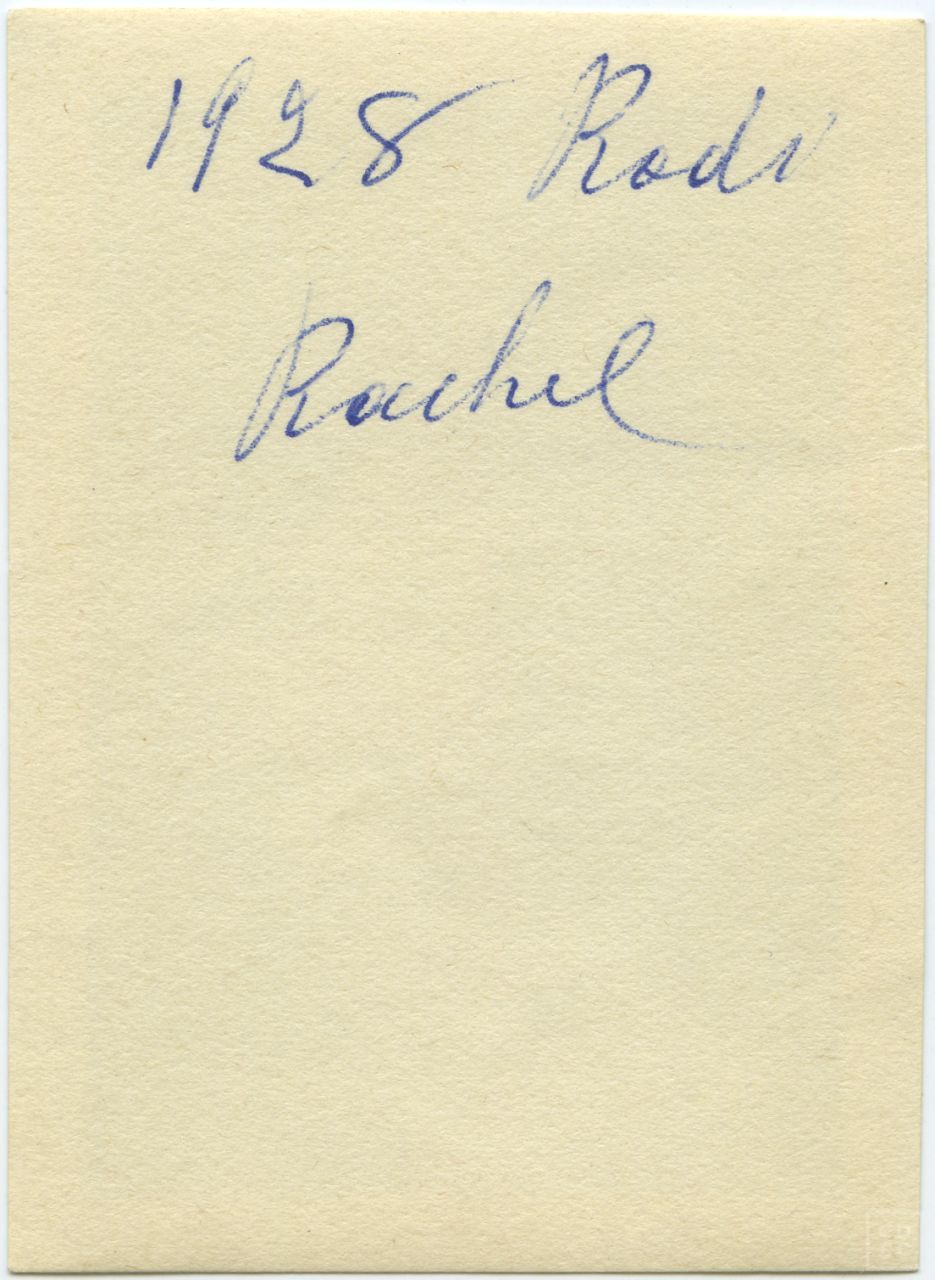 1928 Rodi
Rachel